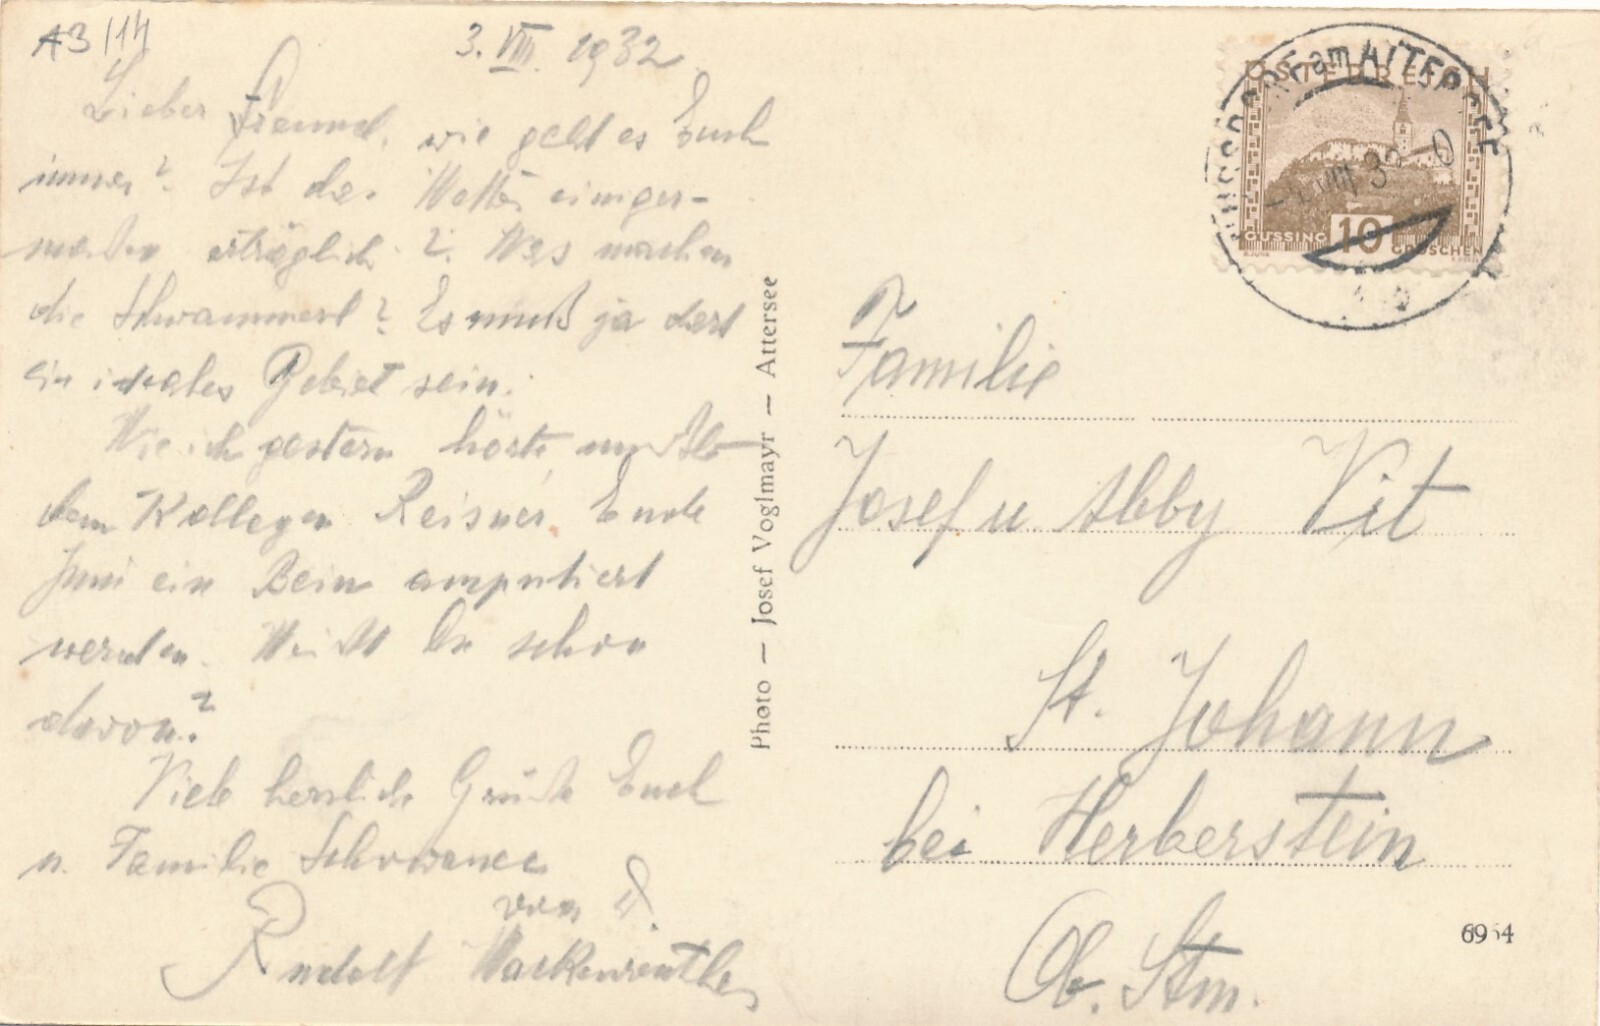 A3/14
3. VIII. 1932
Lieber Freund, wie geht es Euch
immer? Ist das Wetter einiger-
maßen erträglich? Was machen
die Schwammerl? Es muß ja dort
ein ideales Gebiet sein.
Wie ich gestern hörte, mußte
dem Kollegen Reisner Ende
Juni ein Bein amputiert
werden. Weißt Du schon
davon?
Viele herzliche Grüße Euch
u. Familie
von
Rudolf
Photo — Josef Voglmayr — Attersee
ÖSTERREICH
GÜSSING 10 GROSCHEN
NUSSDORF am ATTERSEE
Familie
Josef u Abby Vit
St. Johann
bei Herberstein
Ob. Stm.